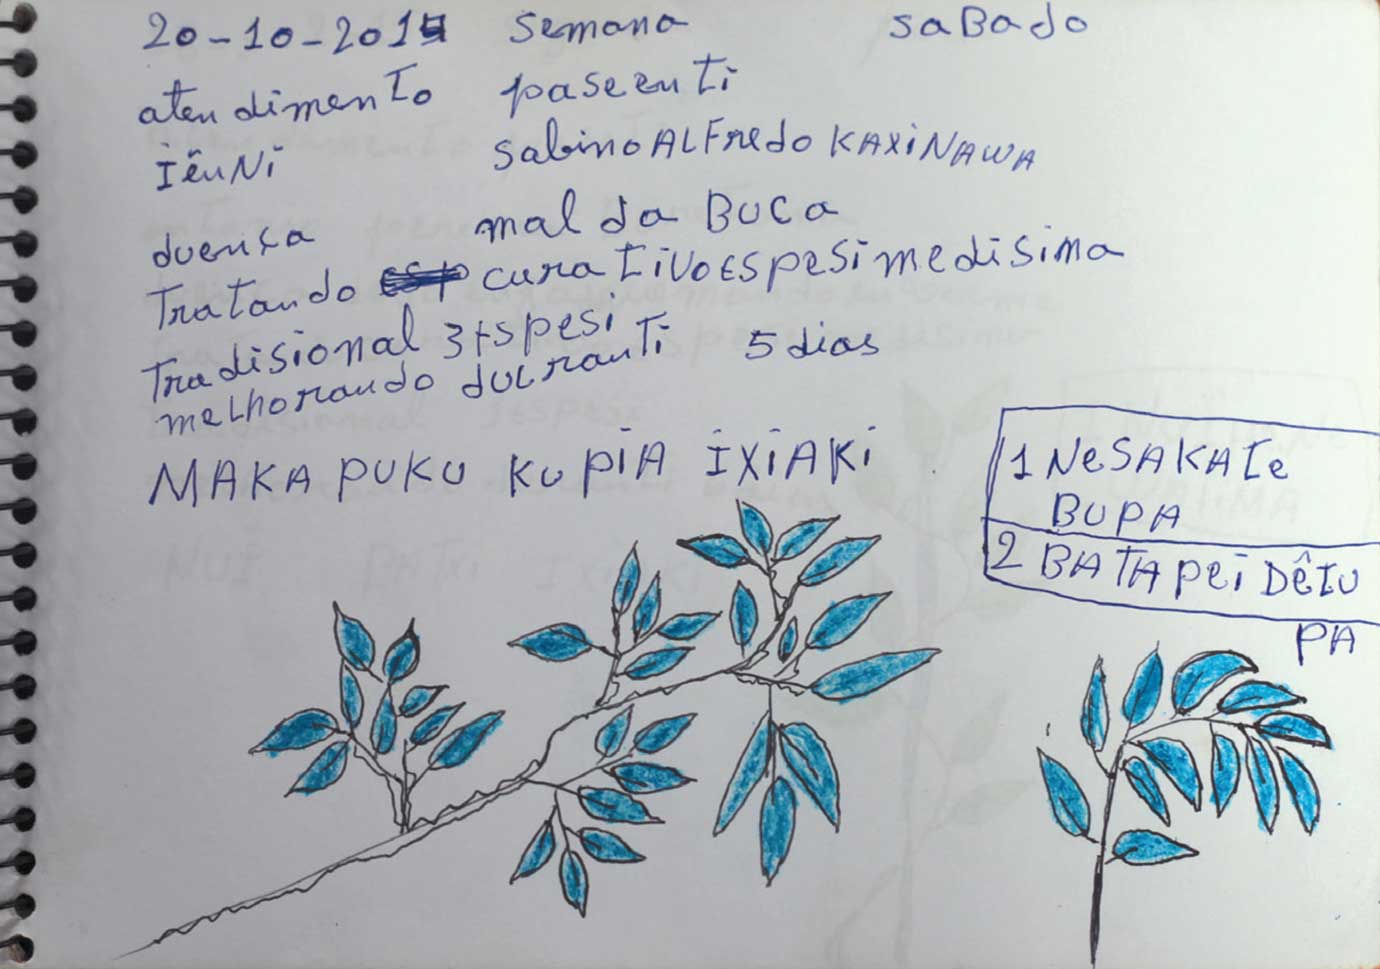 20-10-2014 semana sabado
atendimento paseenti
iêuNi sabino ALFredo KAXiNAWA
duenxa mal da BUCa
Tratando curativo Espesi medisima
Tradisional 3 Espesi
melhorando duranti 5 dias
MAKA PUKU KUPIA IXIAKI
1 NeSAKATe
BUPA
2 BATA Pei DêTU
PA